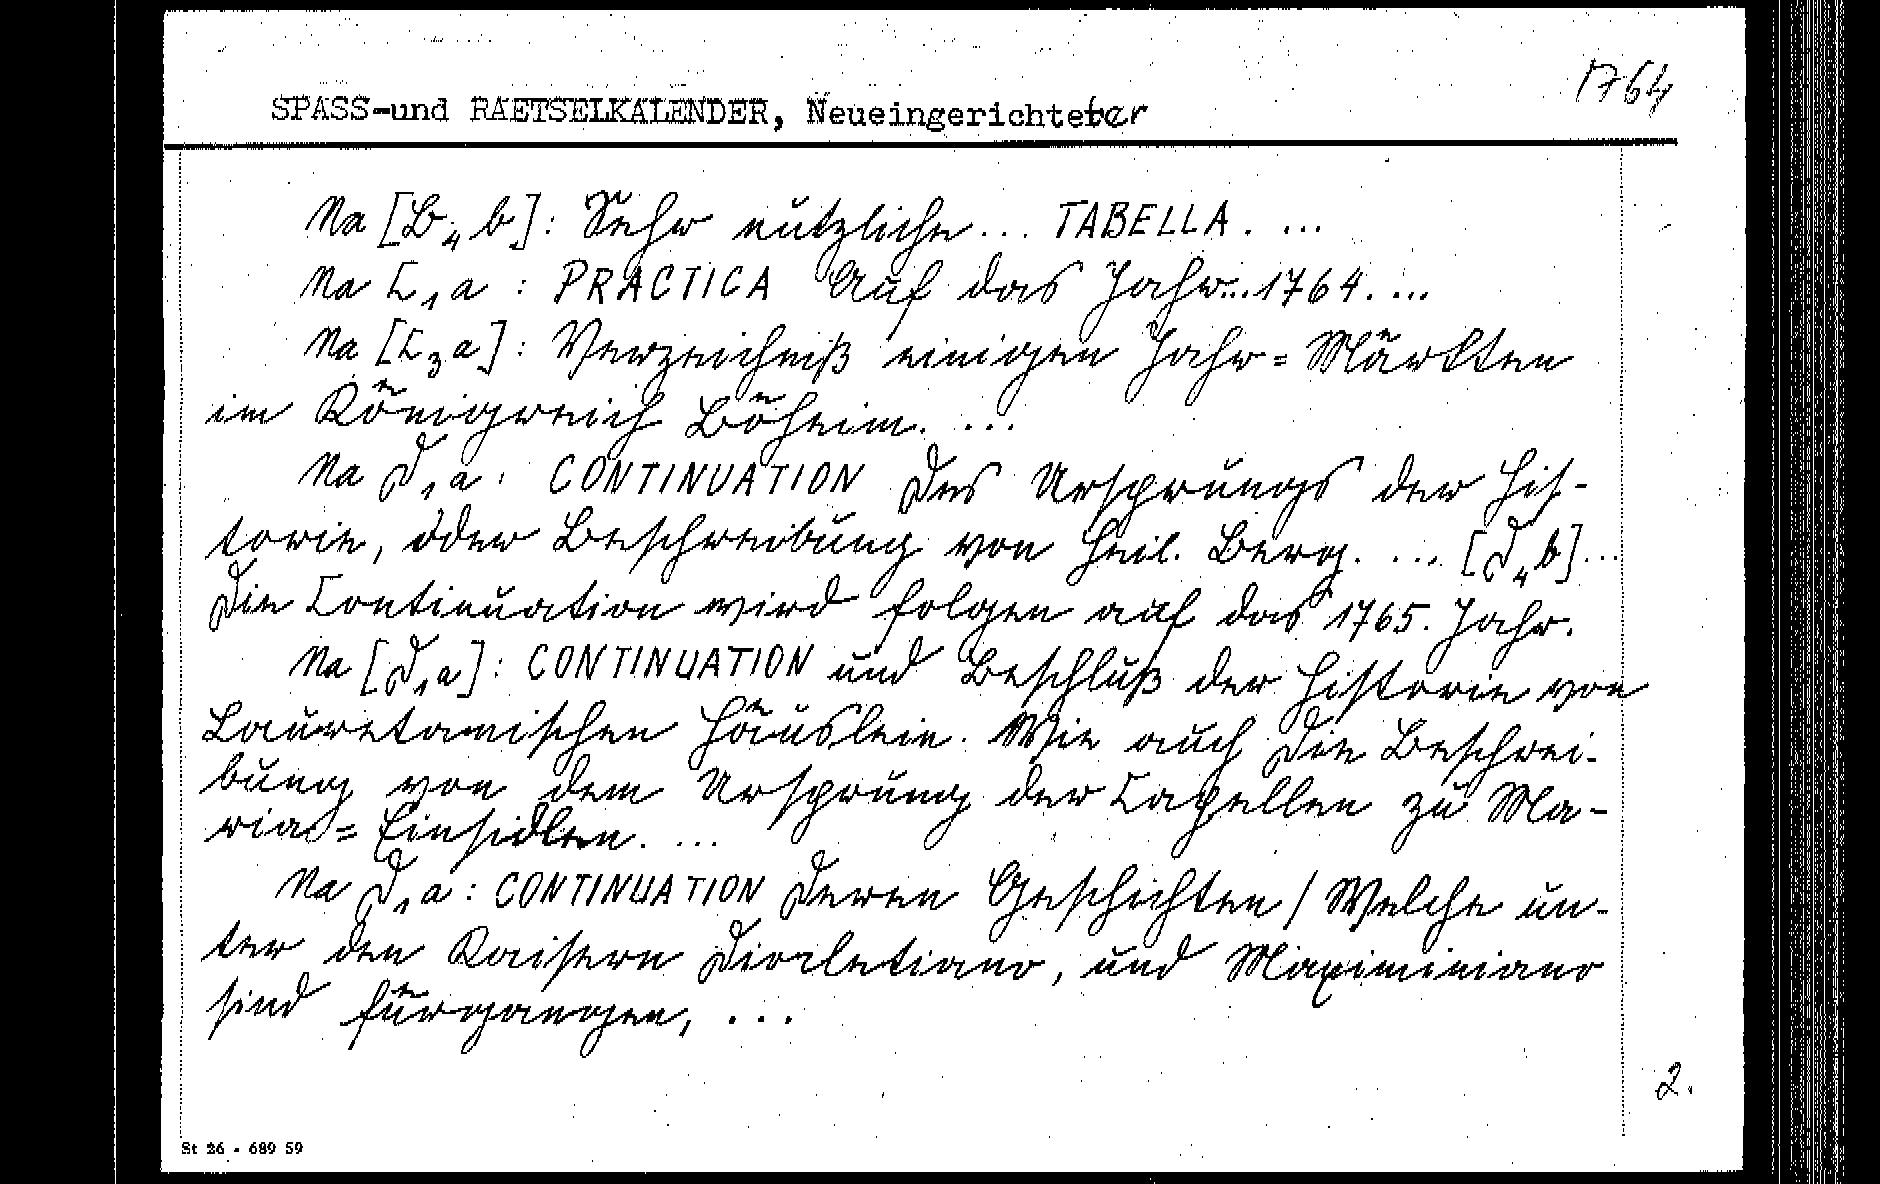 1764
SPASS-und RAETSELKALENDER, Neueingerichteter
Na [B₄b]: Sehr nutzliche... TABELLA. ...
Na C₁a : PRACTICA Auf das Jahr...1764. ...
Na [C₃a]: Verzeichniß einigen Jahr=Märkten
im Königreich Böheim. ...
Na D₁a: CONTINUATION Des Ursprungs der His-
torie, oder Beschreibung von Heil. Berg. ... [D₄b]...
Die Continuation wird folgen auf das 1765. Jahr.
Na [D₁a]: CONTINUATION und Beschluß der Historie von
Lauretanischen Häuslein. Wie auch Die Beschrei-
bung von dem Ursprung der Capellen zu Ma-
ria=Einsidlen. ...
Na D₁a: CONTINUATION Deren Geschichten / Welche un-
ter den Kaisern Diocletiano, und Maximiniano
sind fürgangen, ...
2.
St 26 - 689 59